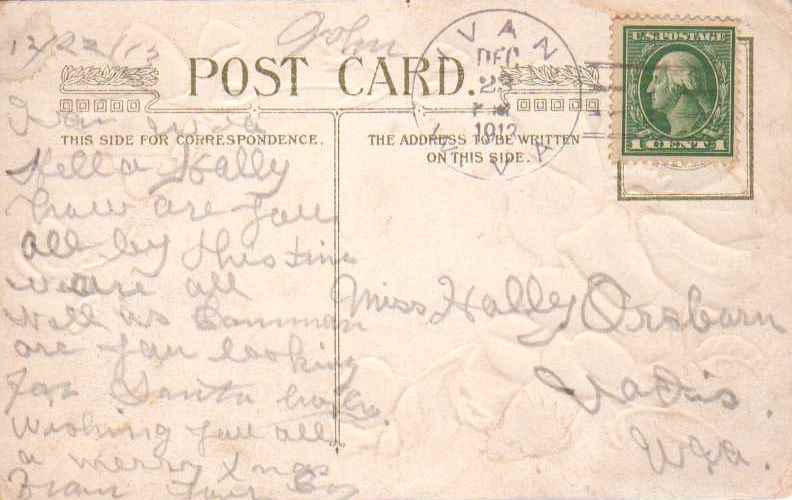 12/22/12
John
POST CARD.
IVAN
DEC
1912
W. VA
U.S. POSTAGE
1 CENT 1
THIS SIDE FOR CORRESPONDENCE.
THE ADDRESS TO BE WRITTEN
ON THIS SIDE.
Ivan
Hello Hally
how are you
all by this time
we are all
well as Common
are you looking
for Santa
Wishing you all
a merry Xmas
From your
Miss Hally Orsbarn
Vadis.
Wva.